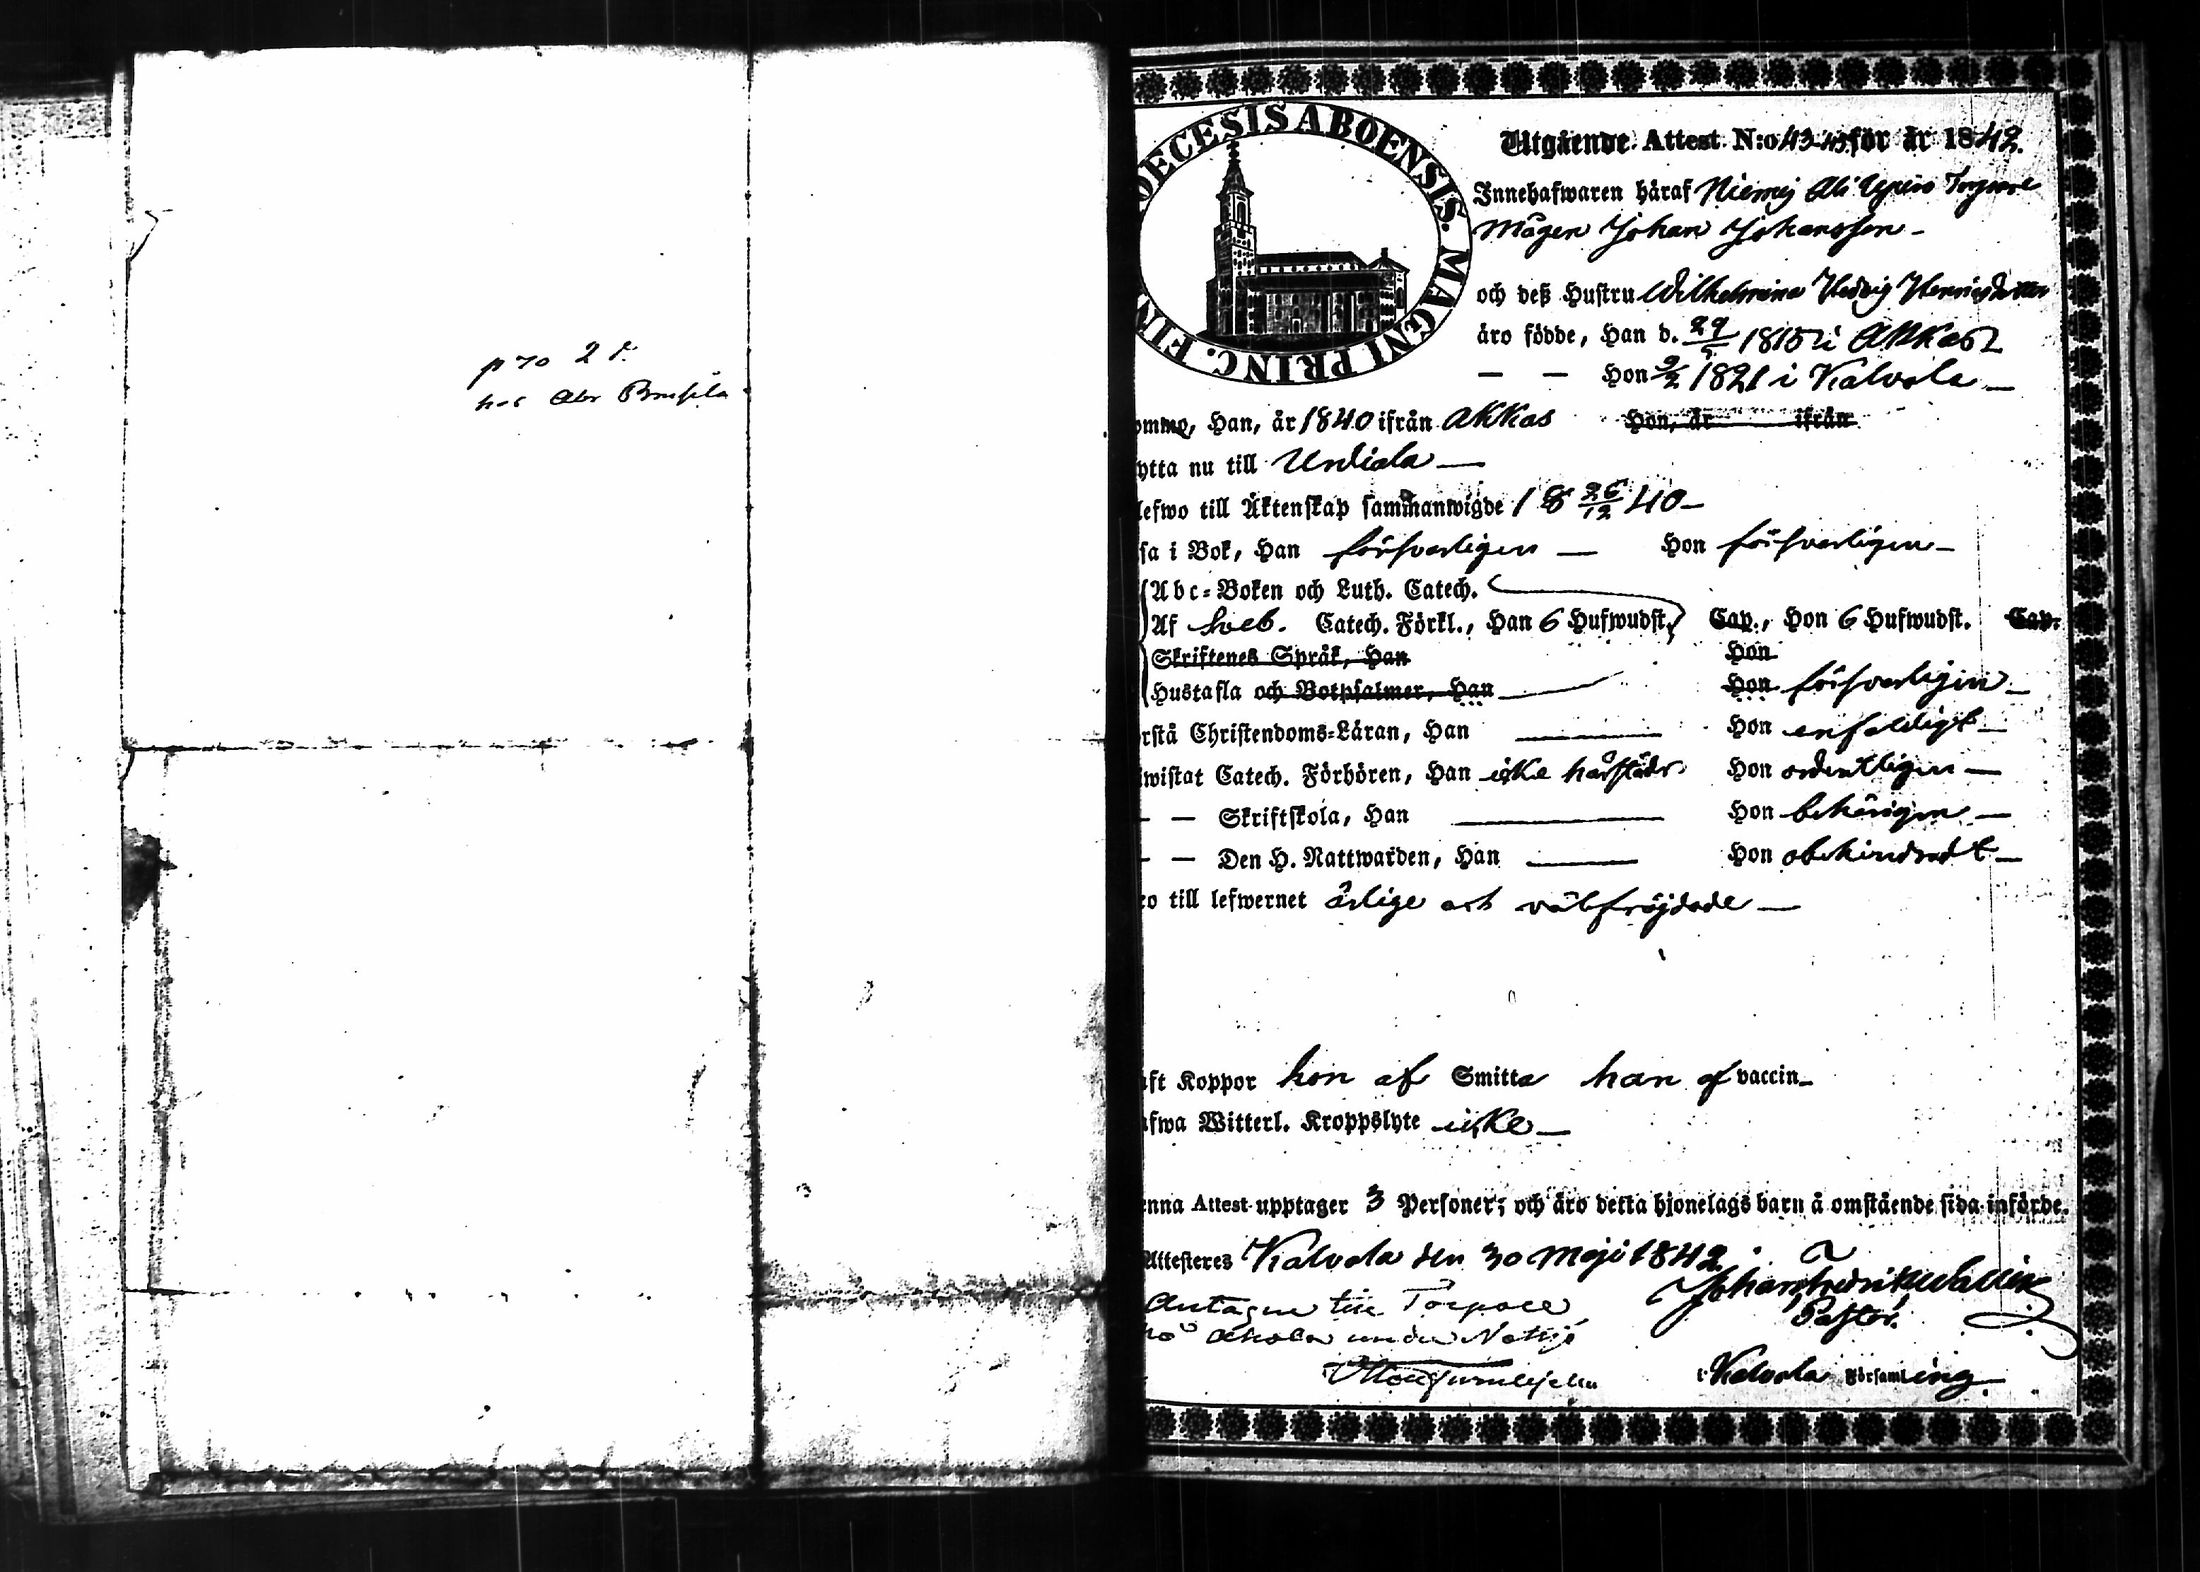 p 70 2 d.
hos Abr
DIOECESIS ABOENSIS. MAGNI PRINC. FIN
Utgående Attest N:o 43-45 för år 1842.
Innehafwaren häraf Niemis
Mågen Johan Johansson –
och deß Hustru Wilhelmina Hedvig Henricsdotter
äro födde, Han d. 29/5 1815 i Akkas
— — Hon 9/2 1821 i Kalvola –
ommo, Han, år 1840 ifrån Akkas Hon, år ifrån
ytta nu till Urdiala —
lefwo till Äktenskap sammanwigde 18 26/12 40 –
sa i Bok, Han försvarligen — Hon försvarligen –
Abc-Boken och Luth. Catech.
Af Sveb. Catech. Förkl., Han 6 Hufwudst. Cap., Hon 6 Hufwudst. Cap.
Skriftenes Språk, Han Hon
Hustafla och Botpsalmer, Han — Hon försvarligen –
rstå Christendoms-Läran, Han — Hon enfaldigt –
wistat Catech. Förhören, Han icke härstädes Hon ordentligen –
– — Skriftskola, Han — Hon behörigen –
– — Den H. Nattwarden, Han — Hon obehindradt –
ro till lefwernet ärlige och välfräjdade —
aft Koppor hon af Smitta han af vaccin –
afwa Witterl. Kroppslyte icke —
enna Attest upptager 3 Personer; och äro detta hjonelags barn å omstående sida införde.
Attesteres Kalvola den 30 Maji 1842.
Johan Fredrik
Pastor.
Antagne till Torpare
under
i Kalvola Församling